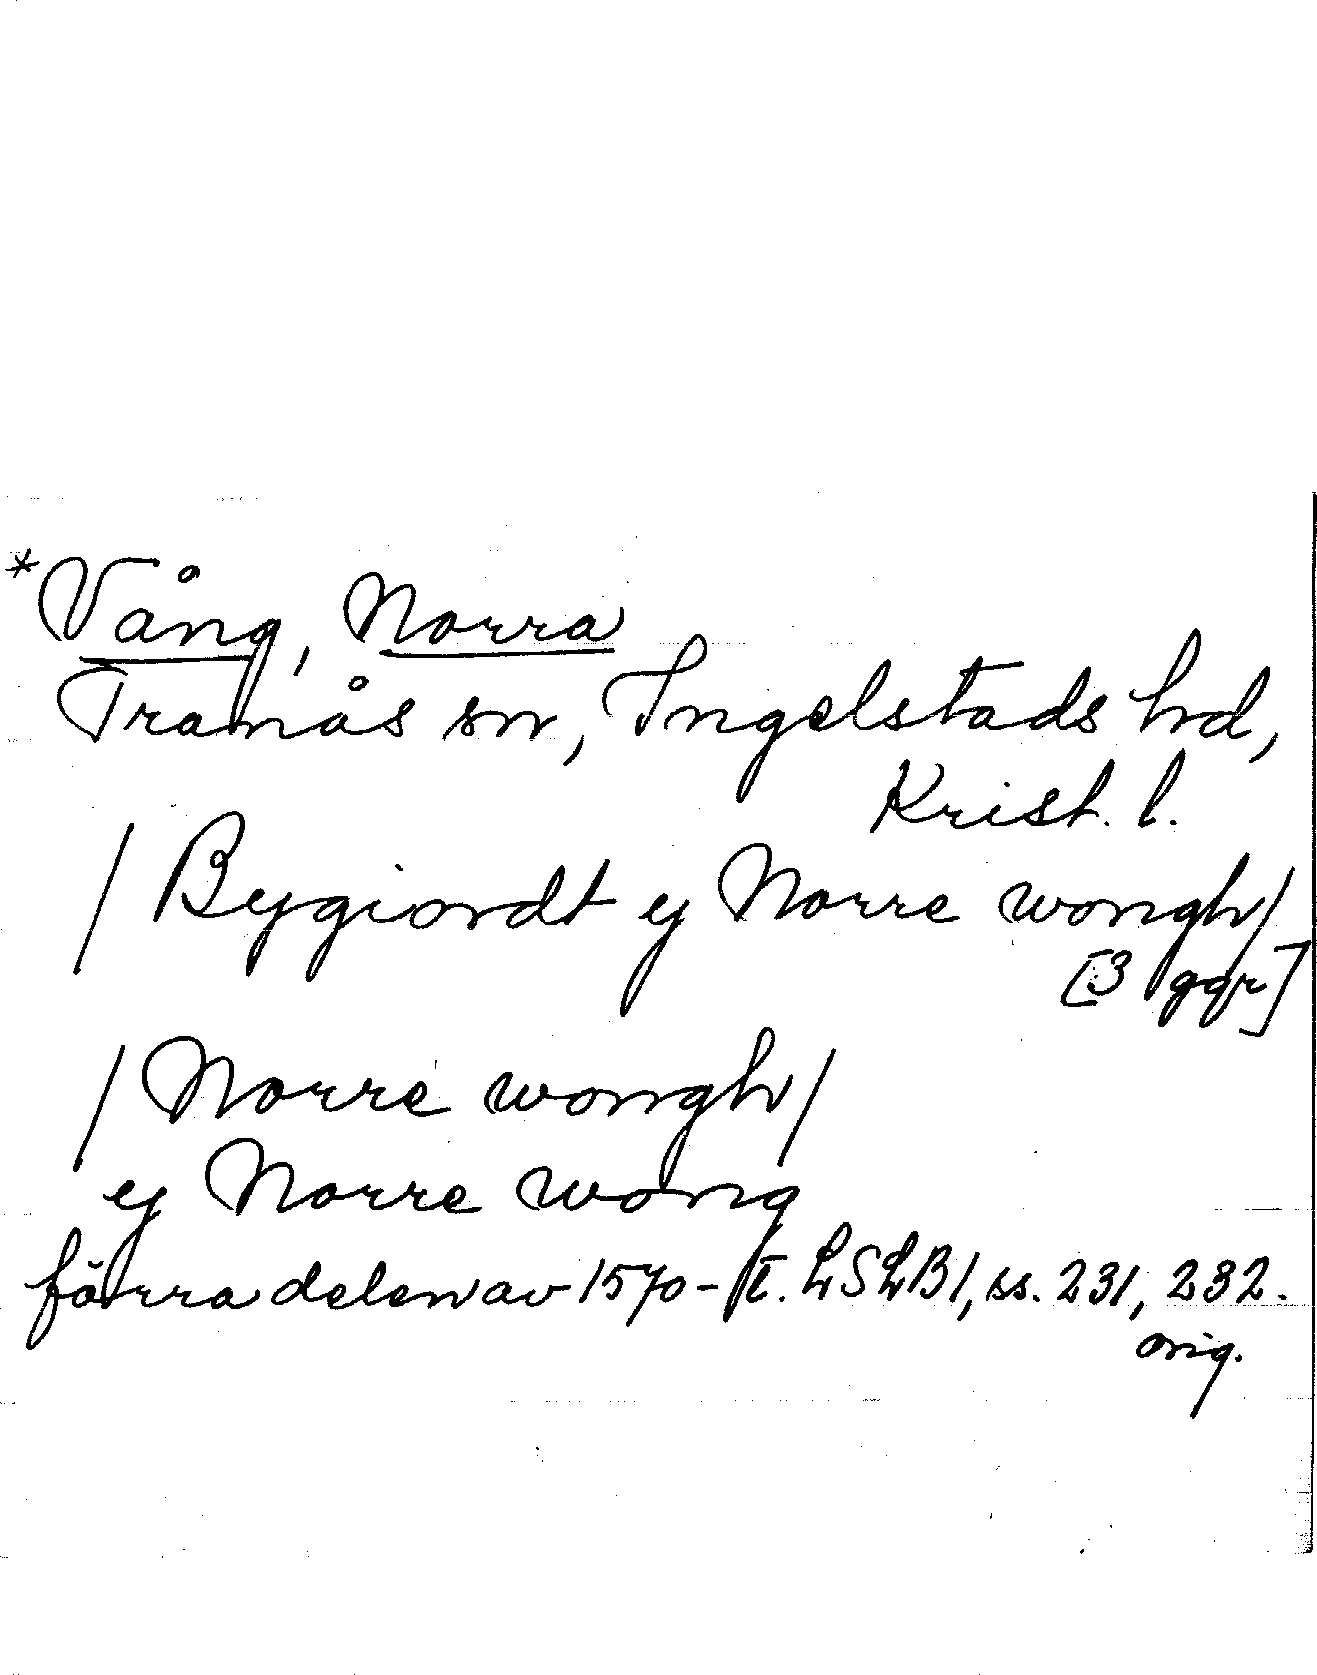 *Vång, Norra
Tranås sn, Ingelstads hd,
Krist. l.
/Bygiordt ey Norre wongh/
[3 ggr]
/Norre wongh/
ey Norre wong
förra delen av 1570-t. LSLB1, ss. 231, 232.
orig.